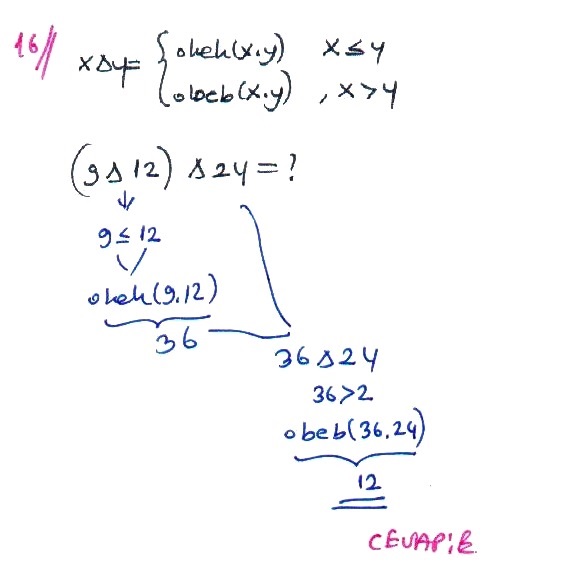 16// x∆y= { okek(x.y) x≤y
obeb(x.y) , x>y
(9∆12) ∆24=?
9≤12
okek(9.12)
36
36∆24
36>2
obeb(36.24)
12
CEVAP:E